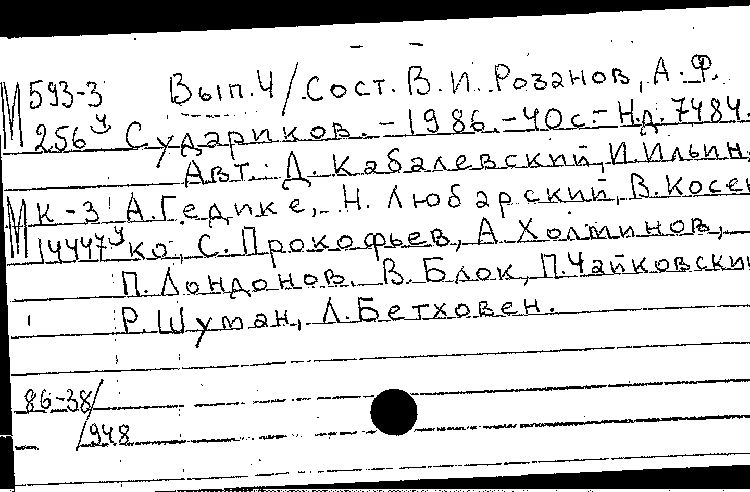 М 593-3 Вып. 4 / Сост. В. И. Розанов, А. Ф.
256 у Судариков. – 1986. – 40 с. – Н.д. 7484.
Авт.: Д. Кабалевский, И. Ильин,
М К-3 А. Гедике, Н. Любарский, В. Косен
14447 у ко, С. Прокофьев, А. Холминов,
П. Лондонов. В. Блок, П. Чайковский
Р. Шуман, Л. Бетховен.
86-38/
948